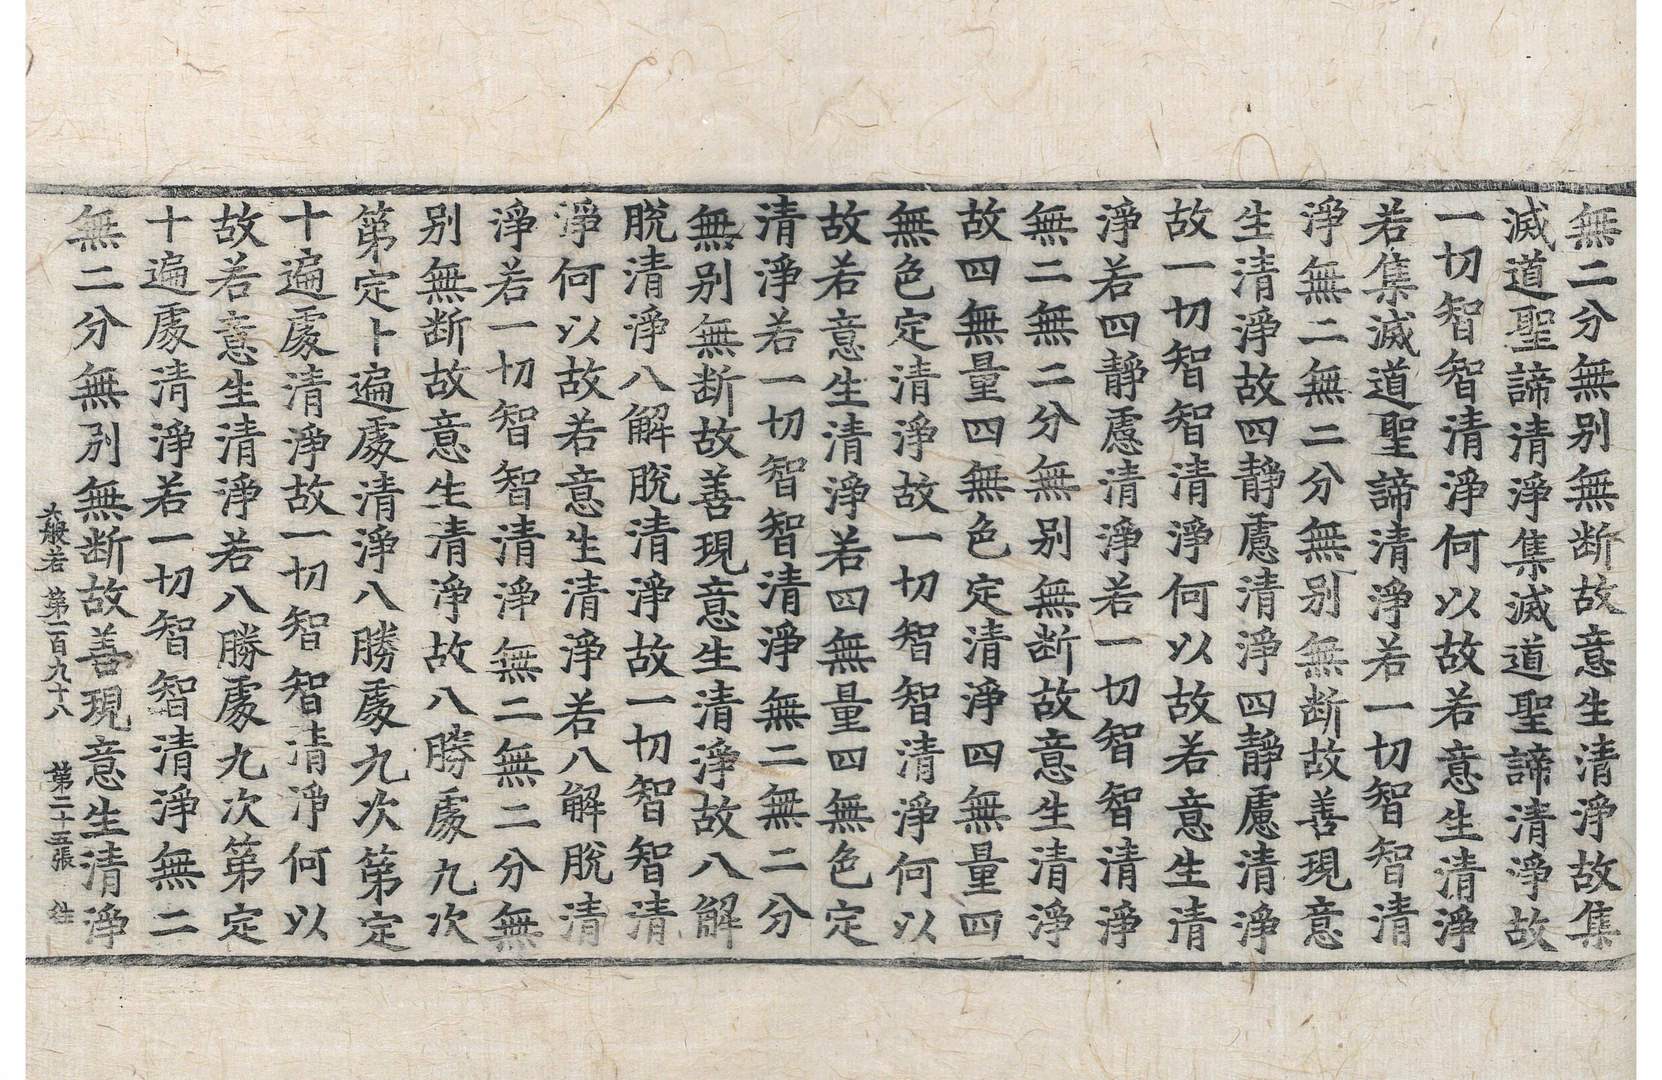 無二分無别無断故意生清淨故集
滅道聖諦清淨集滅道聖諦清淨故
一切智智清淨何以故若意生清淨
若集滅道聖諦清淨若一切智智清
淨無二無二分無别無断故善現意
生清淨故四靜慮清淨四靜慮清淨
故一切智智清淨何以故若意生清
淨若四靜慮清淨若一切智智清淨
無二無二分無别無断故意生清淨
故四無量四無色定清淨四無量四
無色定清淨故一切智智清淨何以
故若意生清淨若四無量四無色定
清淨若一切智智清淨無二無二分
無别無断故善現意生清淨故八解
脫清淨八解脫清淨故一切智智清
淨何以故若意生清淨若八解脫清
淨若一切智智清淨無二無二分無
别無断故意生清淨故八勝處九次
第定十遍處清淨八勝處九次第定
十遍處清淨故一切智智清淨何以
故若意生清淨若八勝處九次第定
十遍處清淨若一切智智清淨無二
無二分無别無断故善現意生清淨
大般若 第一百九十八 第二十五張 往